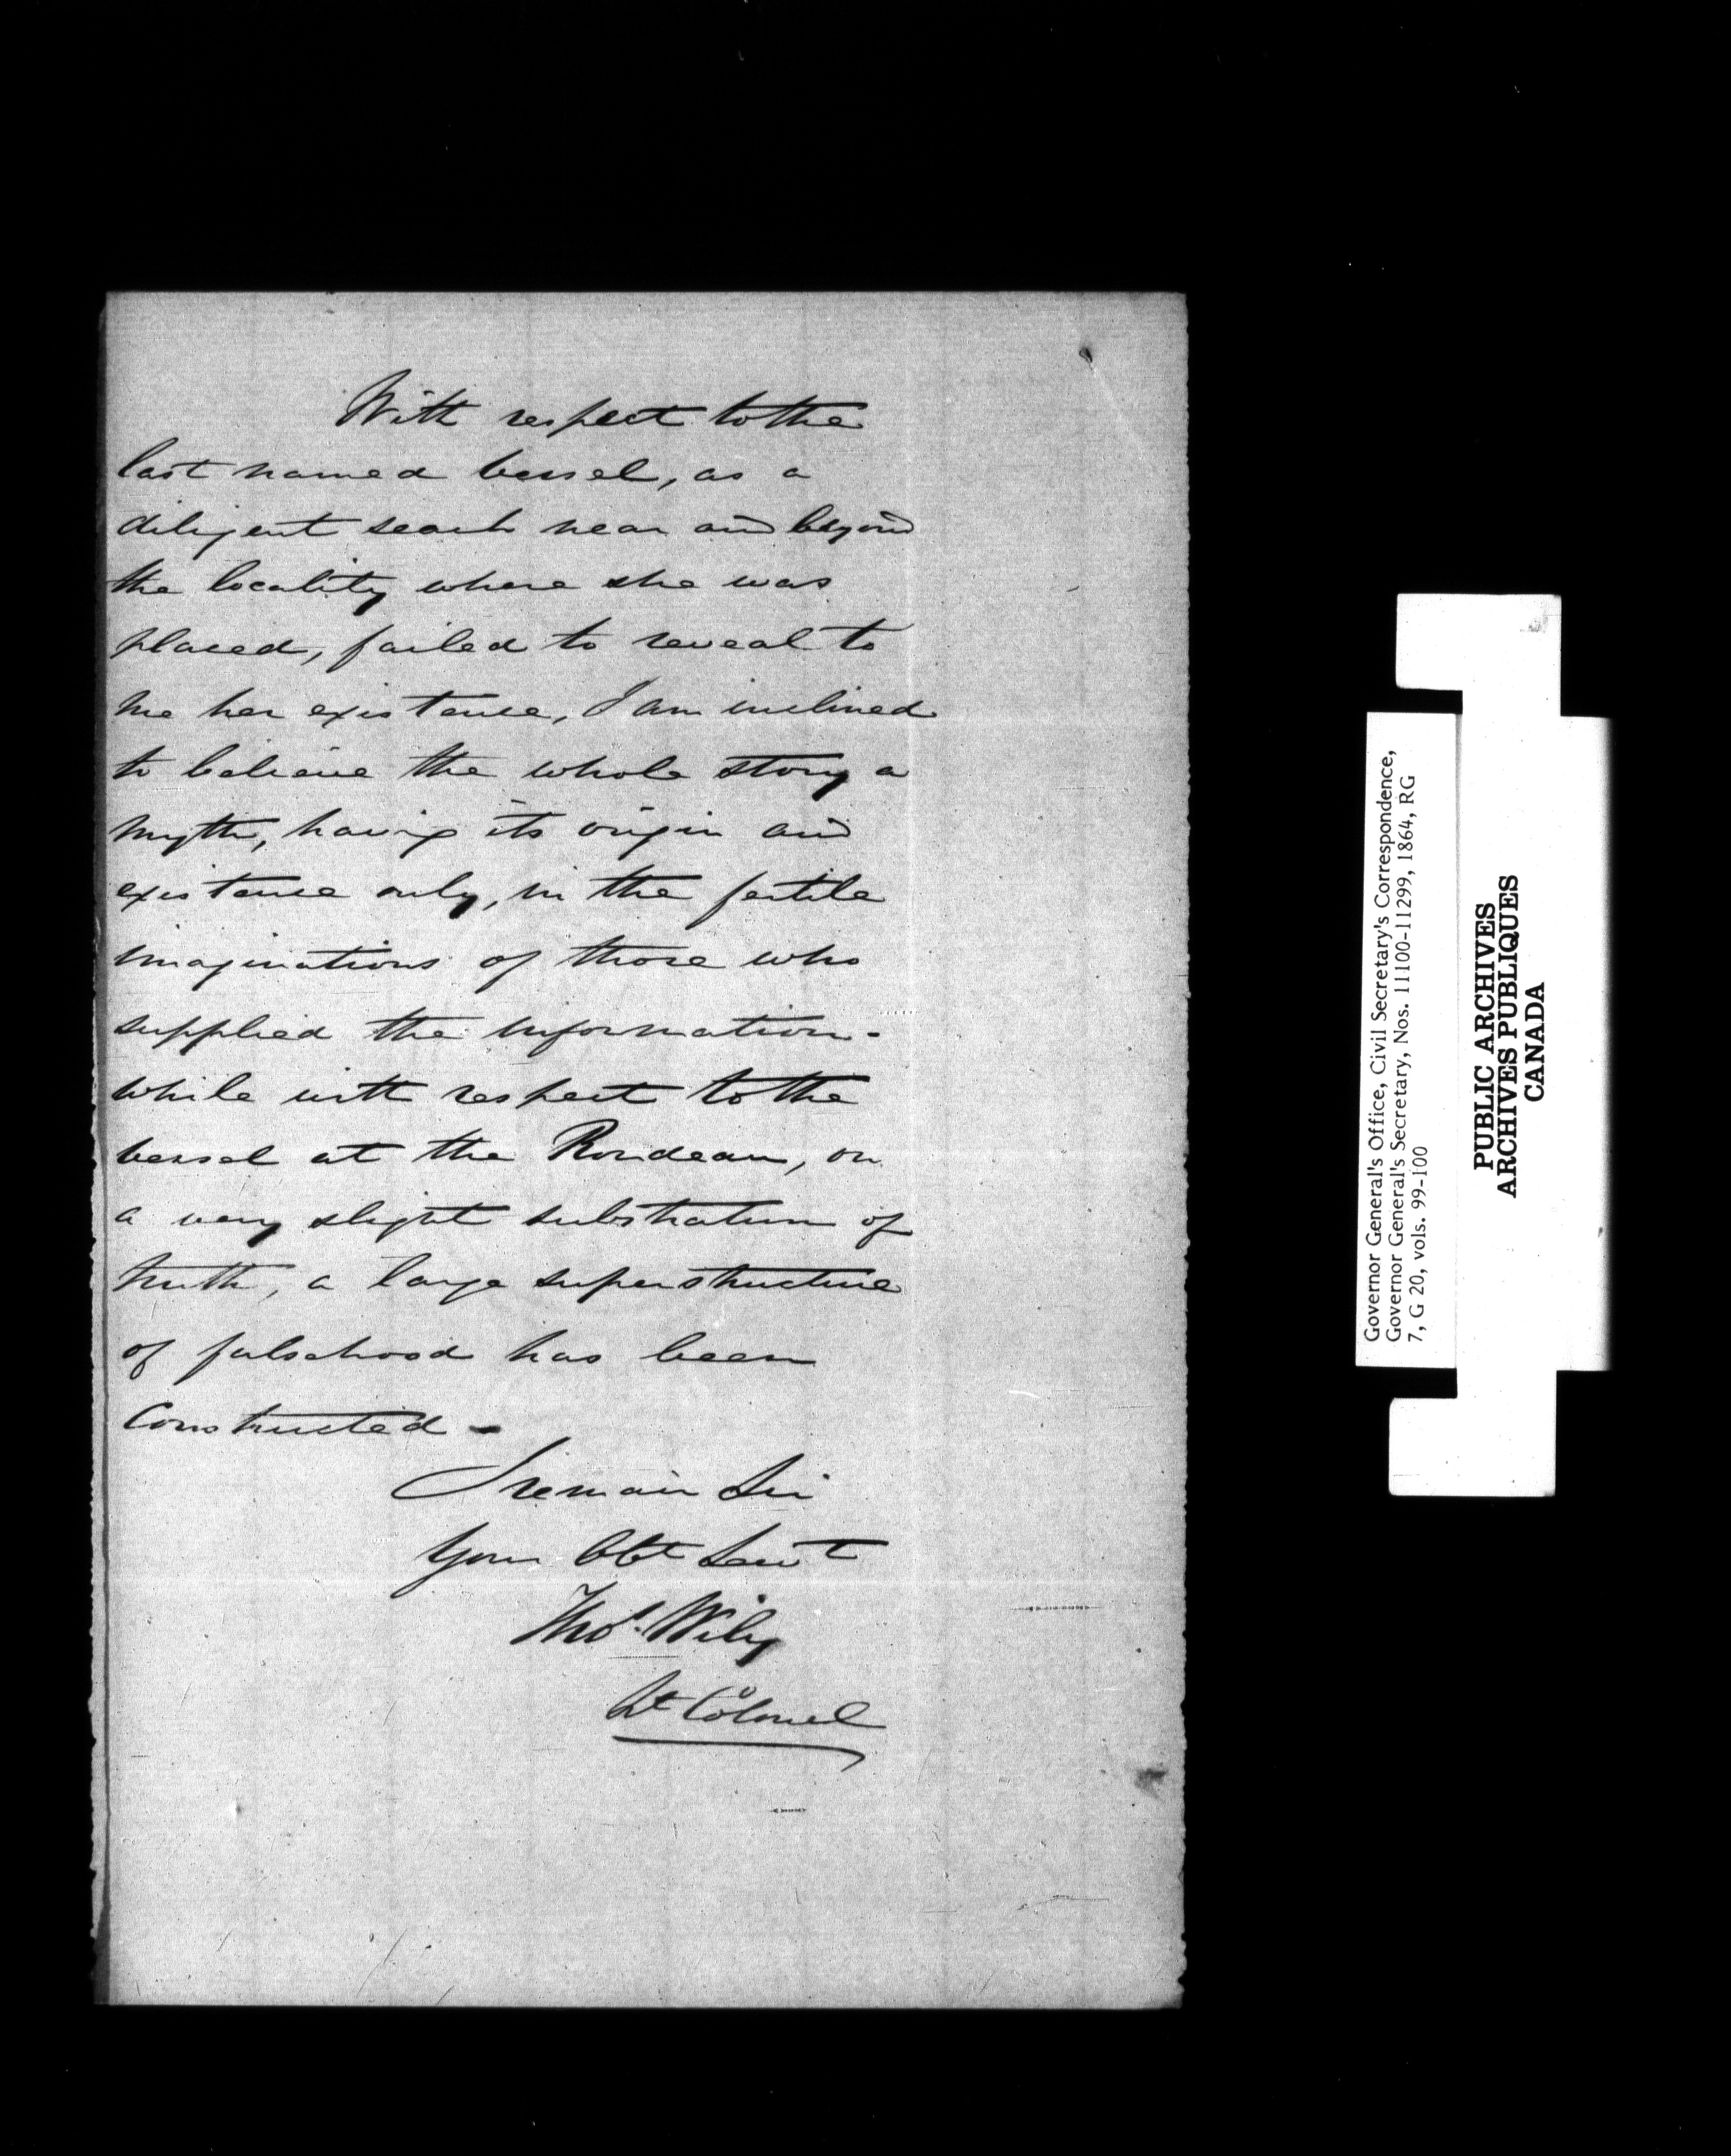 With respect to the
last named vessel, as a
diligent search near and beyond
the locality where she was
placed, failed to reveal to
me her existence, I am inclined
to believe the whole story a
myth, having its origin and
existence only, in the fertile
imaginations of those who
supplied the information -
while with respect to the
vessel at the Rondeau, on
a very slight substratum of
truth, a large superstructure
of falsehood has been
constructed -
I remain Sir
Your Obt Servt
Thos. Wily
Lt Colonel
Governor General's Office, Civil Secretary's Correspondence,
Governor General's Secretary, Nos. 11100-11299, 1864, RG
7, G 20, vols. 99-100
PUBLIC ARCHIVES
ARCHIVES PUBLIQUES
CANADA